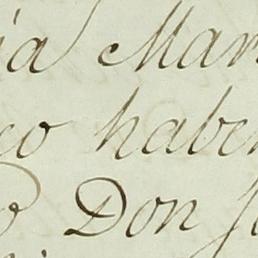 ia Mar
eo haber
Don J